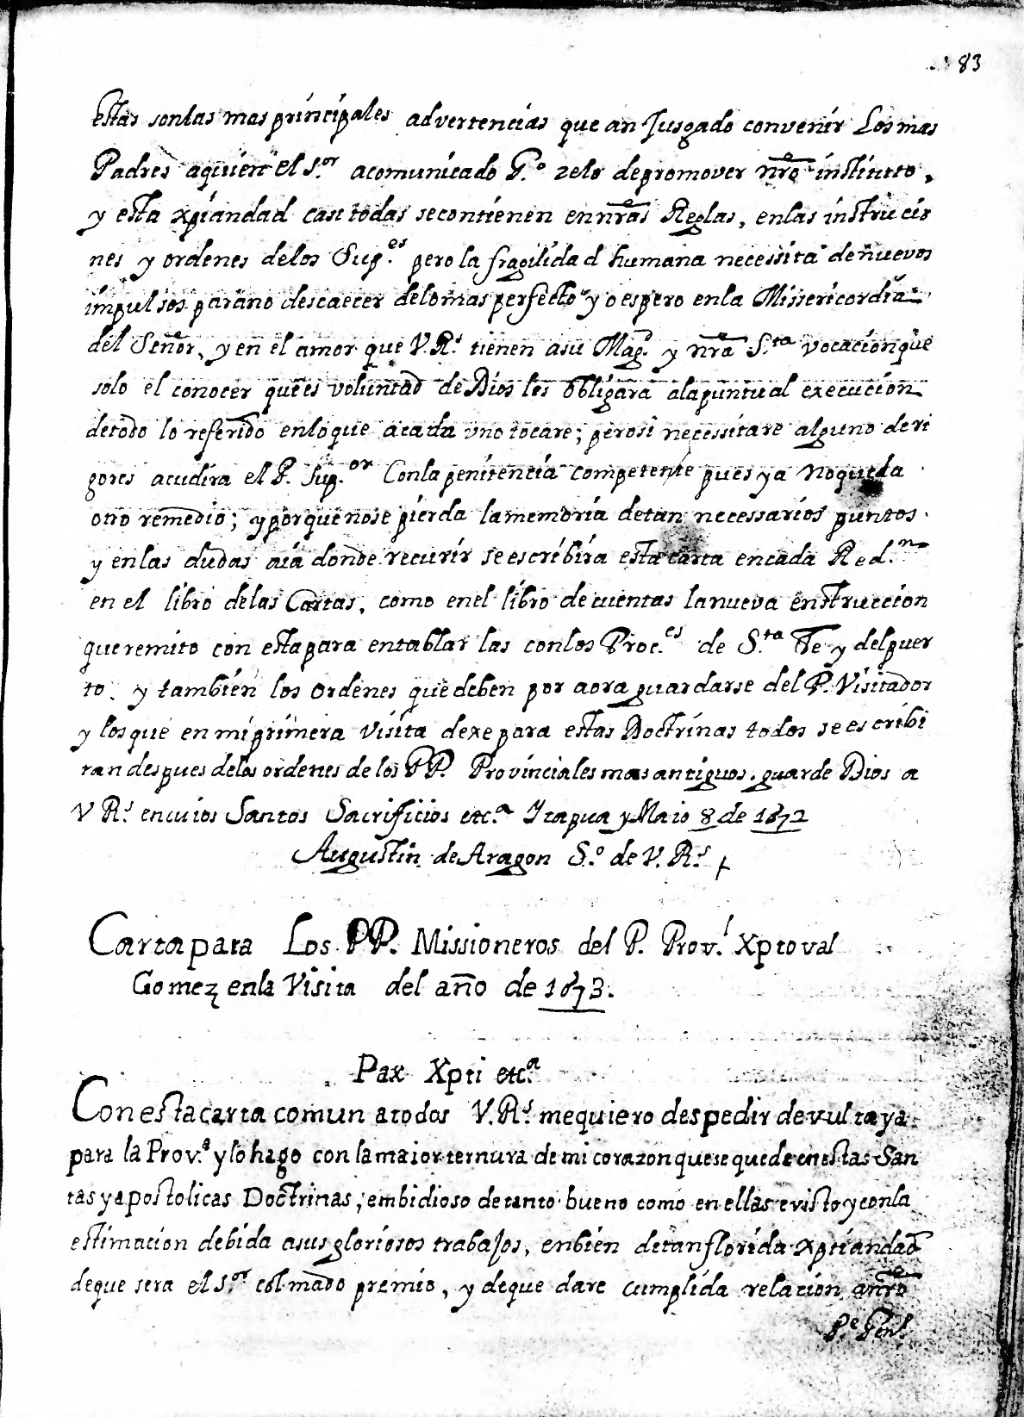 83
estas son las mas principales advertencias que an Jusgado convenir Los mas
Padres aquien el S.or a comunicado G.o zelo de promover nro instituto,
y esta xpiandad casi todas se contienen en nras Reglas, en las instrucio
nes y ordenes de los Sup.es pero la fragilidad humana necessita de nuevos
impulsos para no descaecer de lo mas perfecto y o espero en la Missericordia
del Señor, y en el amor que V.Rs tienen a su Mag. y nra S.ta vocacion que
solo el conocer que es voluntad de Dios les obligara a la puntual execucion
de todo lo referido en lo que a cada uno tocare; pero si necessitare alguno de ri
gores acudira el P. Sup.or Con la penitencia competente pues ya no queda
otro remedio; y porque no se pierda la memoria de tan necessarios puntos.
y en las dudas aia donde recurir se escribira esta carta en cada Red.on
en el libro de las Cartas, como en el libro de cuentas la nueva enstruccion
que remito con esta para entablar las con los Proc.es de S.ta Fe y del puer
to. y tambien los ordenes que deben por aora guardarse del P. Visitador
y los que en mi primera visita dexe para estas Doctrinas todos se escribi
ran despues de los ordenes de los PP. Provinciales mas antiguos. guarde Dios a
V Rs en cuios Santos Sacrificios etc.a Itapua y Maio 8 de 1672
Augustin de Aragon S.o de V. Rs
Carta para Los PP. Missioneros del P. Prov.l Xptoval
Gomez en la Visita del año de 1673.
Pax Xpti etc.a
Con esta carta comun a todos V.Rs me quiero despedir de vulta ya
para la Prov.a y lo hago con la maior ternura de mi corazon que se quede en estas San
tas y apostolicas Doctrinas; embidioso de tanto bueno como en ellas e visto y con la
estimacion debida a sus gloriosos trabajos, en bien de tan florida xptiandad
de que sera el S.or colmado premio, y de que dare cumplida relacion a nro
P.e Genl.